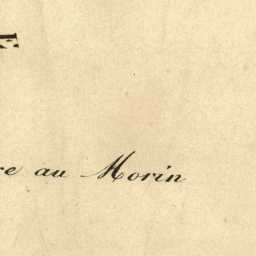 re au Morin